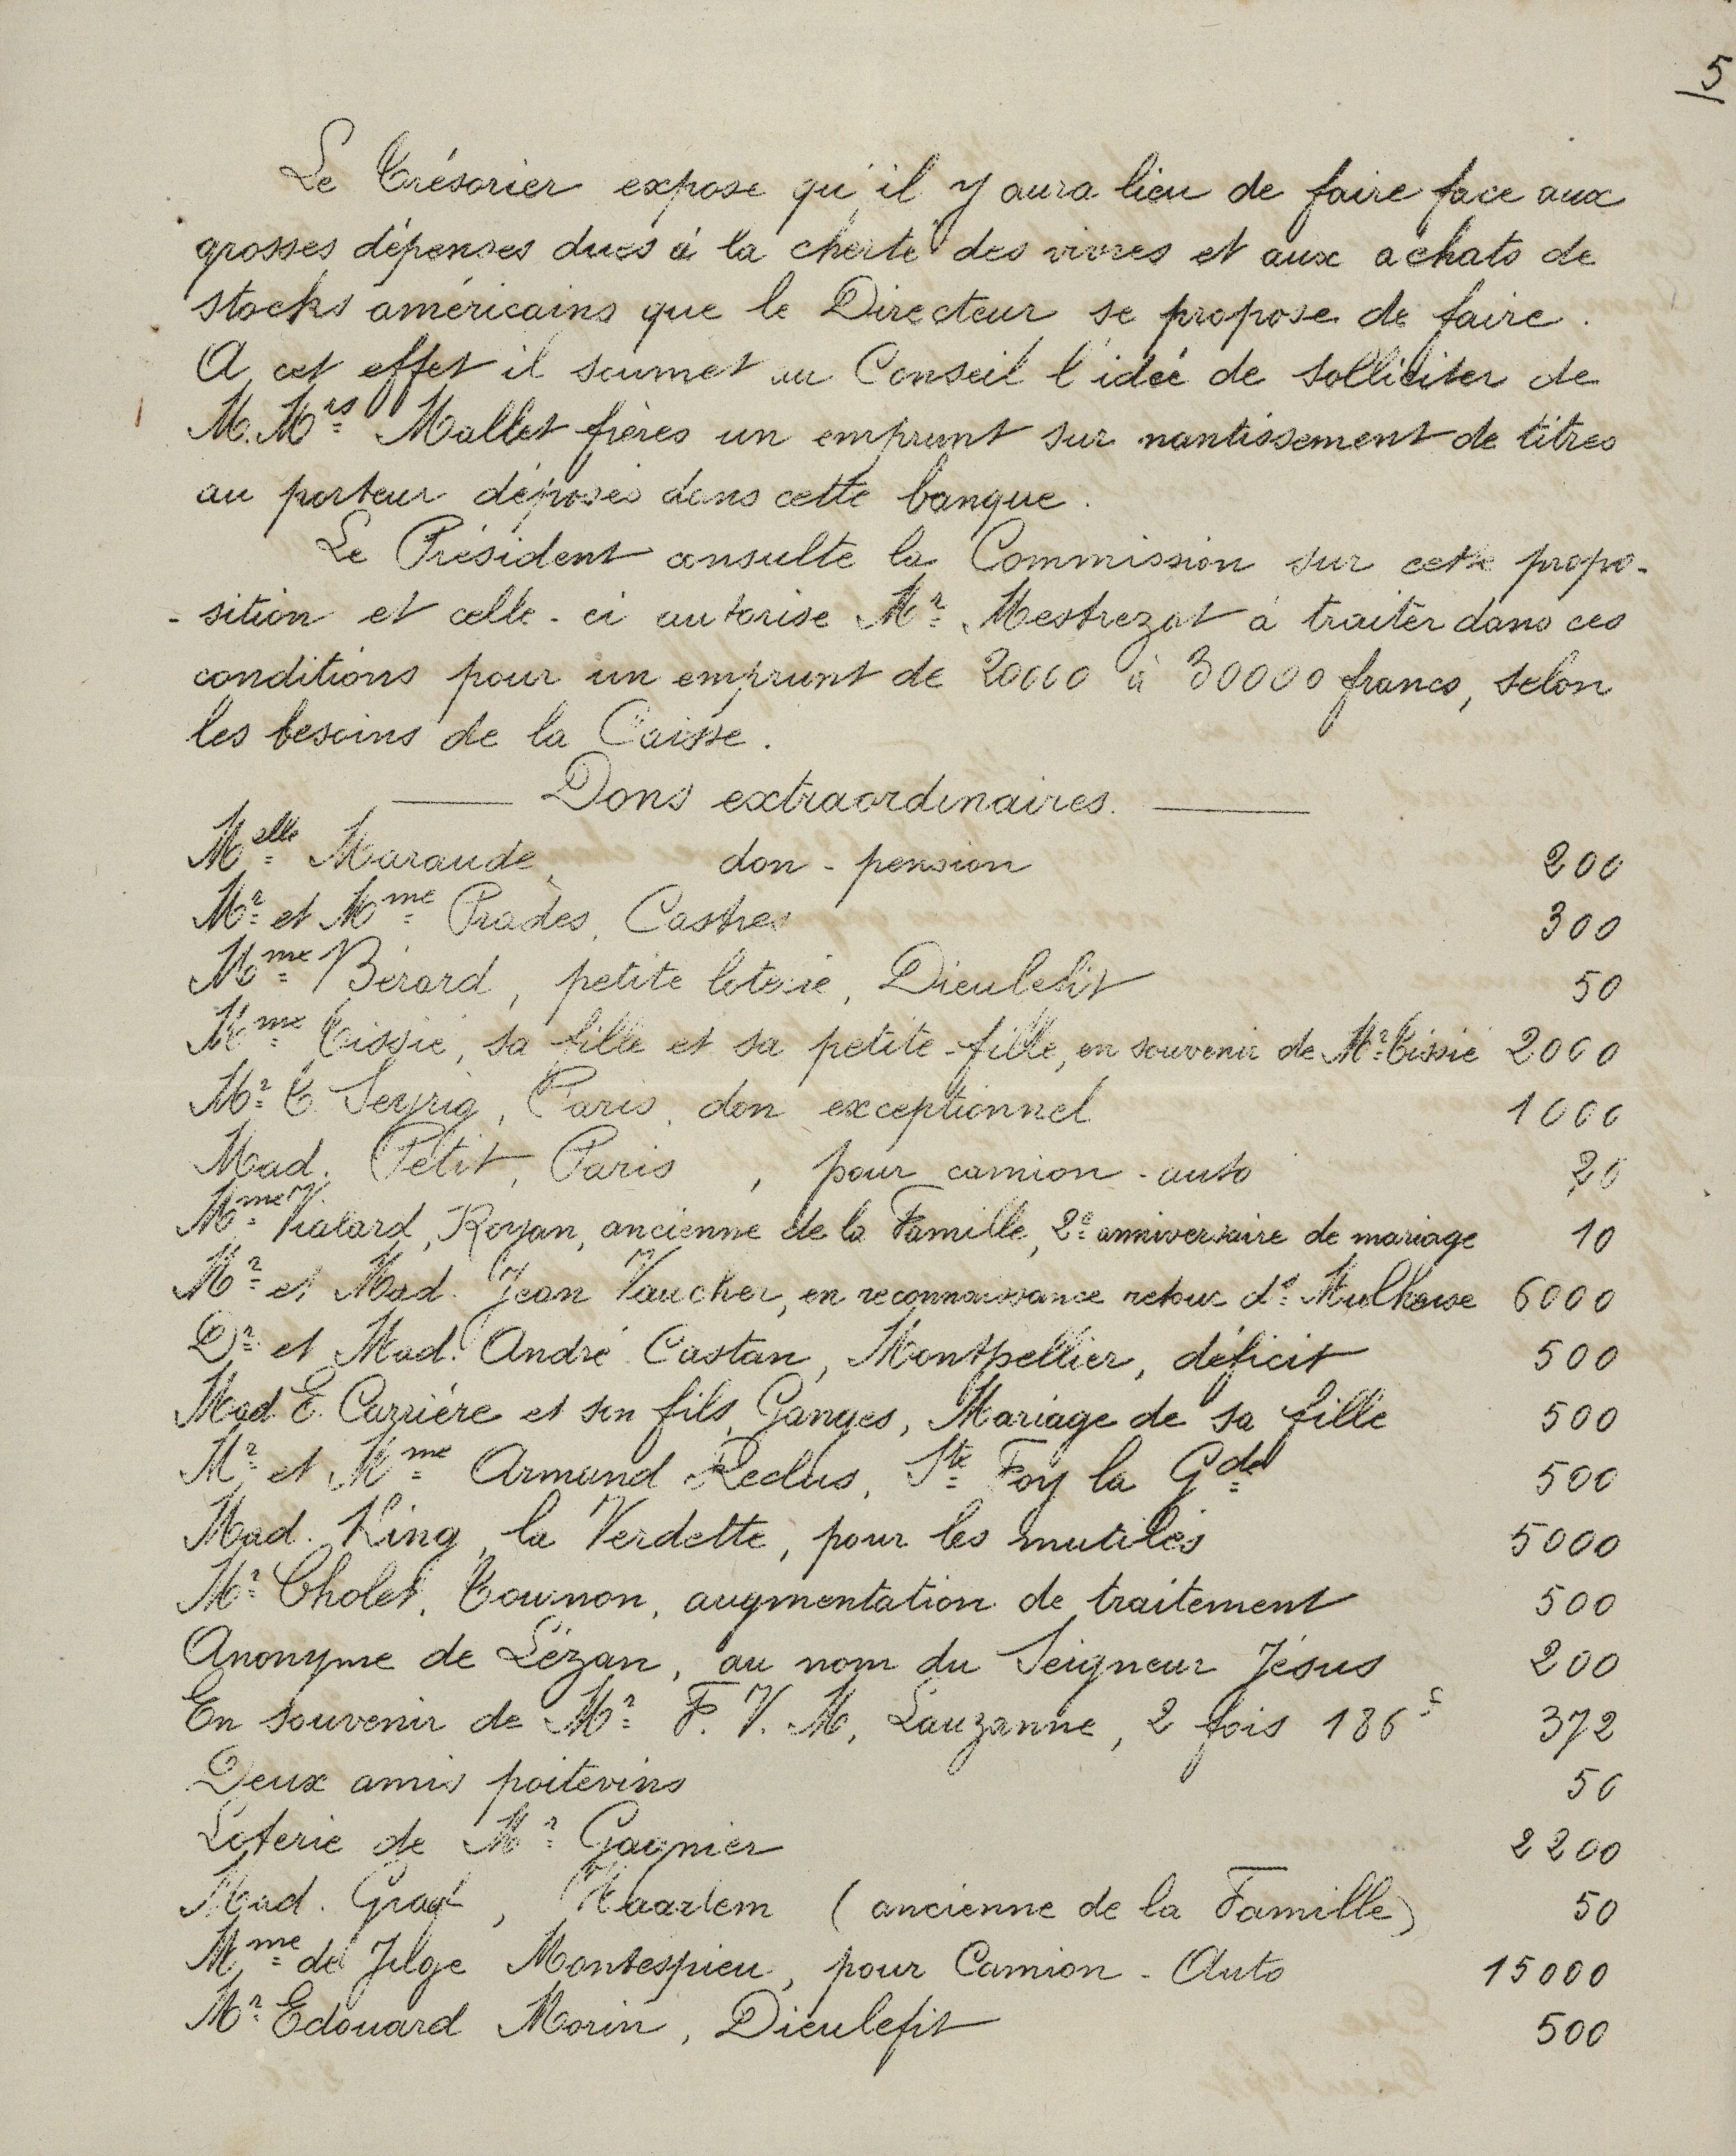 5
Le Trésorier expose qu'il y aura lieu de faire face aux
grosses dépenses dues à la cherté des vivres et aux achats de
stocks américains que le Directeur se propose de faire.
A cet effet il soumet au Conseil l'idée de solliciter de
M.Mrs Mallet frères un emprunt sur nantissement de titres
au porteur déposés dans cette banque.
Le Président consulte la Commission sur cette propo-
-sition et celle-ci autorise Mr Mestrezat à traiter dans ces
conditions pour un emprunt de 20000 à 30000 francs, selon
les besoins de la Caisse.
Dons extraordinaires.
Melle Maraude, don-pension 200
Mr et Mme Prades, Castres 300
Mme Bérard, petite loterie, Dieulefit 50
Mme Tissié, sa fille et sa petite-fille, en souvenir de Mr Tissié 2000
Mr T. Seyrig, Paris, don exceptionnel 1000
Mad. Petit, Paris, pour camion-auto 20
Mme V. Vialard, Royan, ancienne de la Famille, 2e anniversaire de mariage 10
Mr et Mad. Jean Vaucher, en reconnaissance retour de Mulhouse 6000
Dr et Mad. André Castan, Montpellier, déficit 500
Mad. E. Carrière et son fils, Ganges, Mariage de sa fille 500
Mr et Mme Armand Reclus, Ste Foy la Gde 500
Mad. King, la Verdette, pour les mutilés 5000
Mr Cholet, Tournon, augmentation de traitement 500
Anonyme de Lézan, au nom du Seigneur Jésus 200
En souvenir de Mr F. V. M, Lauzanne, 2 fois 186 372
Deux amis poitevins 50
Loterie de Mr Gagnier 2200
Mad. Graaf, Haarlem (ancienne de la Famille) 50
Mme de Montespieu, pour Camion-Auto 15000
Mr Edouard Morin, Dieulefit 500